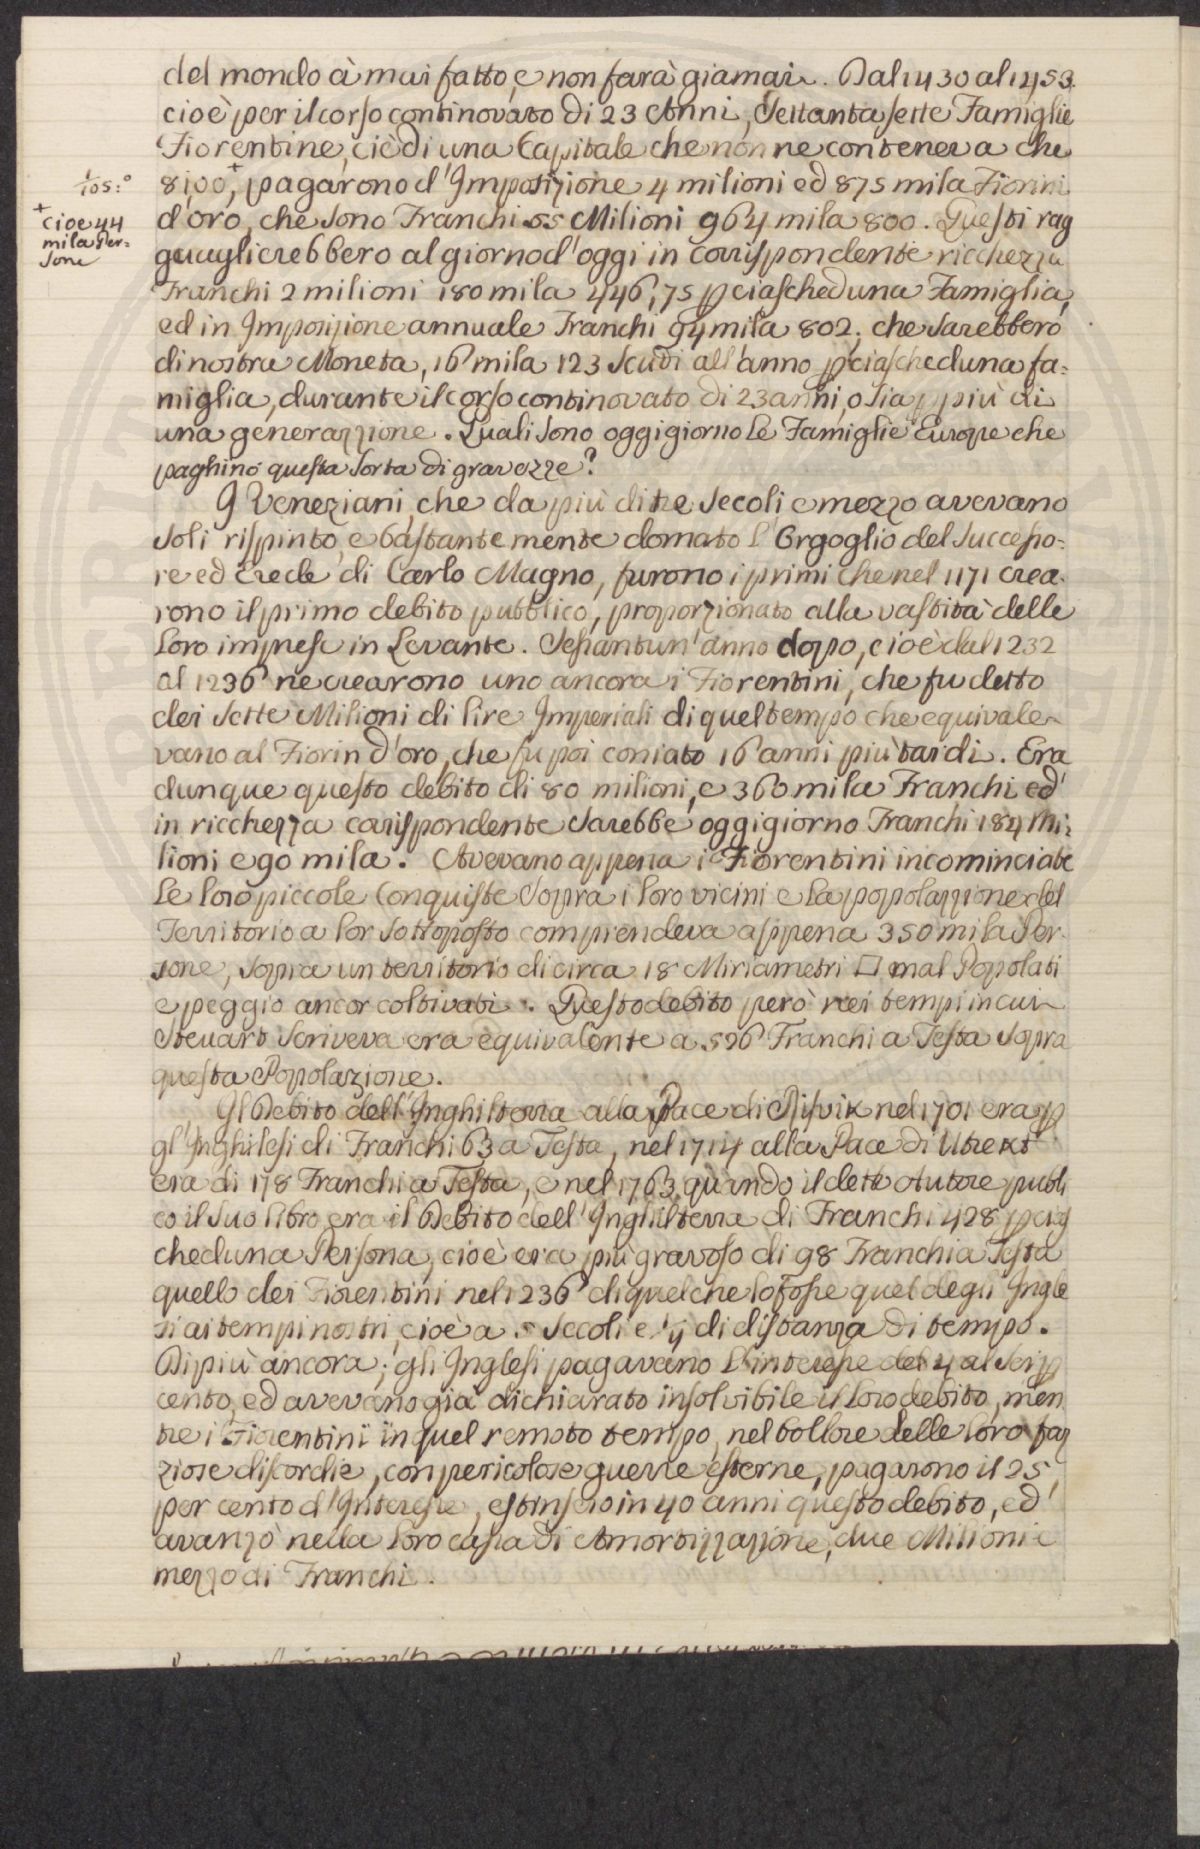 del mondo à mai fatto, e non farà giamai. Dal 1430 al 1453.
cioè per il corso continovato di 23 Anni, Settantasette Famiglie
Fiorentine, ciè di una Capitale che non ne conteneva che
1/105:°
8,100,+ pagarono d'Imposizione 4 milioni ed 875 mila Fiorini
+
cioe 44
mila Per=
sone
d'oro, che sono Franchi 55 Milioni 964 mila 800. Questi rag
guaglierebbero al giorno d'oggi in corrispondente ricchezza
Franchi 2 milioni 180 mila 446,75 p ciascheduna Famiglia,
ed in Imposizione annuale Franchi 94 mila 802. che sarebbero
di nostra Moneta, 16 mila 123 scudi all'anno p ciascheduna fa=
miglia, durante il corso continovato di 23 anni, o sia p più di
una generazzione. Quali sono oggigiorno le Famiglie Europe che
paghino questa sorta di gravezze?
I Veneziani, che da più di tre secoli e mezzo avevano
soli rispinto, e bastantemente domato l'Orgoglio del Successo=
re ed Erede di Carlo Magno, furono i primi che nel 1171 crea-
rono il primo debito pubblico, proporzionato alla vastità delle
loro imprese in Levante. Sessantun'anno dopo, cioè dal 1232
al 1236 ne crearono uno ancora i Fiorentini, che fu detto
dei sette Milioni di lire Imperiali di quel tempo che equivale-
vano al Fiorin d'oro, che fu poi coniato 16 anni più tardi. Era
dunque questo debito di 80 milioni, e 360 mila Franchi ed
in ricchezza corrispondente sarebbe oggigiorno Franchi 184 mi=
lioni e 90 mila. Avevano appena i Fiorentini incominciate
le loro piccole Conquiste sopra i loro vicini e la popolazzione del
Territorio a lor sottoposto comprendeva appena 350 mila Per-
sone, sopra un territorio di circa 18 Miriametri □ mal Popolati
e peggio ancor coltivati. Questo debito però nei tempi in cui
Steuart scriveva era equivalente a 526 Franchi a Testa sopra
questa Popolazione.
Il Debito dell'Inghilterra alla Pace di Risvik nel 1701 era p
gl'Inghilesi di Franchi 63 a Testa, nel 1714 alla Pace di Utrekt
era di 178 Franchi a Testa, e nel 1763, quando il detto Autore publi
co il suo libro, era il Debito dell'Inghilterra di Franchi 428 p cias
cheduna Persona, cioè era più gravoso di 98 Franchi a Testa
quello dei Fiorentini nel 1236 di quel che lo fosse quel degli Ingle
si ai tempi nostri, cioè a 5 secoli e ½ di distanza di tempo.
Di più ancora; gli Inglesi pagavano l'interesse del 4 al sei p
cento, ed avevano già dichiarato insolvibile il loro debito, men
tre i Fiorentini in quel remoto tempo, nel bollore delle loro faz
ziose discordie, con pericolose guerre esterne, pagarono il 25
per cento d'Interesse, estinsero in 40 anni questo debito, ed
avanzò nella loro cassa di Amortizzazzione, due Milioni e
mezzo di Franchi.